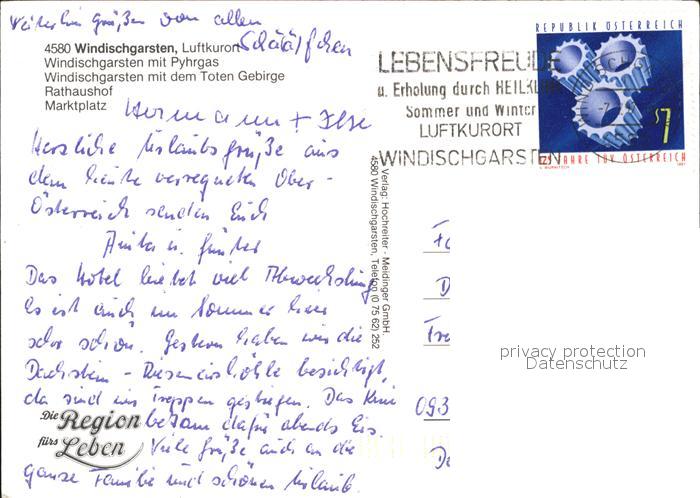 Weiterhin Grüße von allen
Schääfchen
4580 Windischgarsten, Luftkurort
Windischgarsten mit Pyhrgas
Windischgarsten mit dem Toten Gebirge
Rathaushof
Marktplatz
Hermann + Ilse
Herzliche Urlaubsgrüße aus
dem heute verregneten Ober-
Österreich senden Euch
Anita u. Günter
Das Hotel bietet viel Abwechslung
Es ist auch im Sommer hier
sehr schön. Gestern haben wir die
Dachstein - Rieseneishöhle besichtigt,
da sind wir Treppen gestiegen. Das Knie
bekam dafür abends Eis.
Viele Grüße auch an die
ganze Familie und schönen Urlaub.
Die Region
fürs Leben
Verlag: Hochreiter - Meidinger GmbH.
4580 Windischgarsten, Telefon (0 75 62) 252
LEBENSFREUDE
u. Erholung durch HEILKLIMA
Sommer und Winter
LUFTKURORT
WINDISCHGARSTEN
REPUBLIK ÖSTERREICH
S7
125 JAHRE TÜV ÖSTERREICH
1997
093
privacy protection
Datenschutz